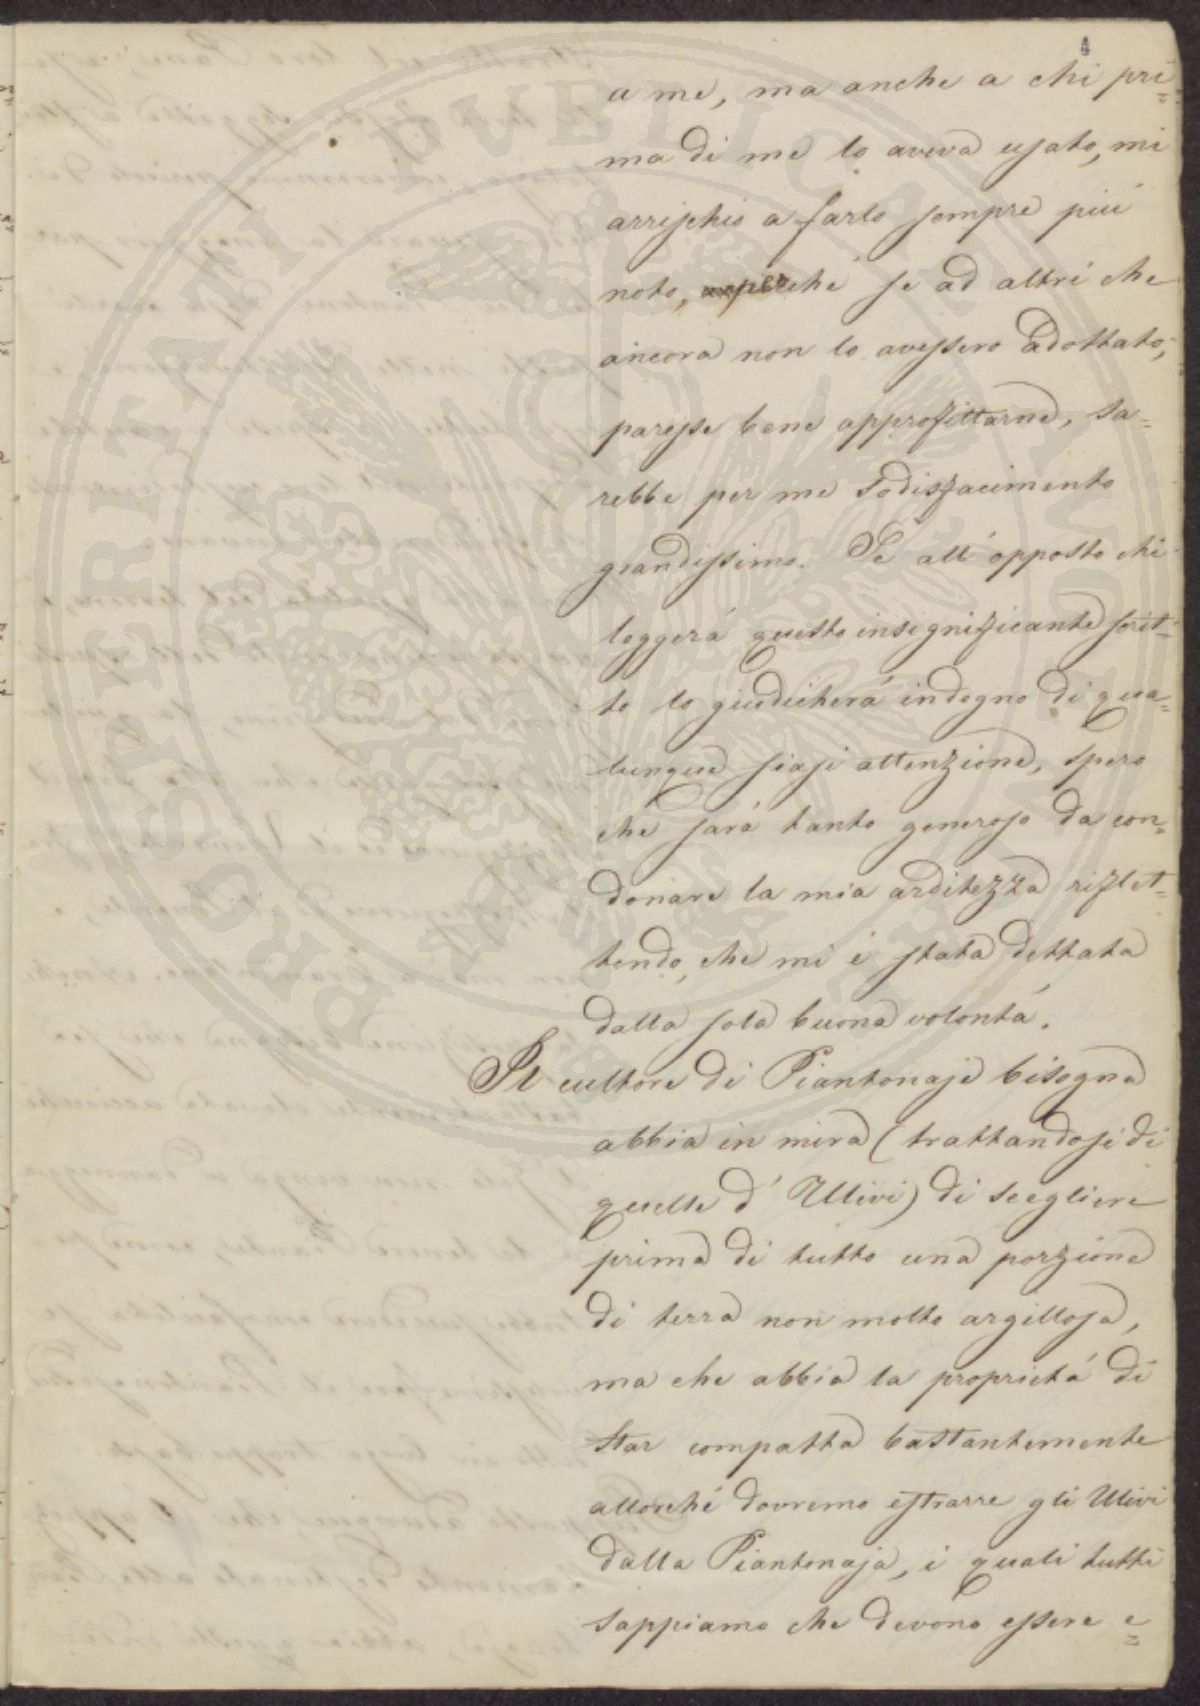 4
a me, ma anche a chi pri=
ma di me lo aveva usato, mi
arrischio a farlo sempre piú
noto, perché se ad altri che
ancora non lo avessero adottato,
paresse bene approfittarne, sa=
rebbe per me sodisfacimento
grandissimo. Se all'opposto chi
leggerá questo insignificante scrit=
to lo giudicherá indegno di qua=
lunque siasi attenzione, spero
che sará tanto generoso da con=
donare la mia arditezza riflet=
tendo, che mi è stata dettata
dalla sola buona volontá.
Il cultore di Piantonaje bisogna
abbia in mira (trattandosi di
quelle d'Ulivi) di scegliere
prima di tutto una porzione
di terra non molto argillosa,
ma che abbia la proprietá di
star compatta bastantemente
allorché dovremo estrarre gli Ulivi
dalla Piantonaja, i quali tutti
sappiamo che devono essere e=
PROSPERITATI PVBLICAE AVGENDAE